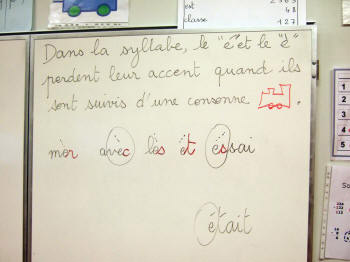 Dans la syllabe, le "é" et le "è"
perdent leur accent quand ils
sont suivis d'une consonne .
mèr avèc lès èt éssai
était
est
classe
48
127